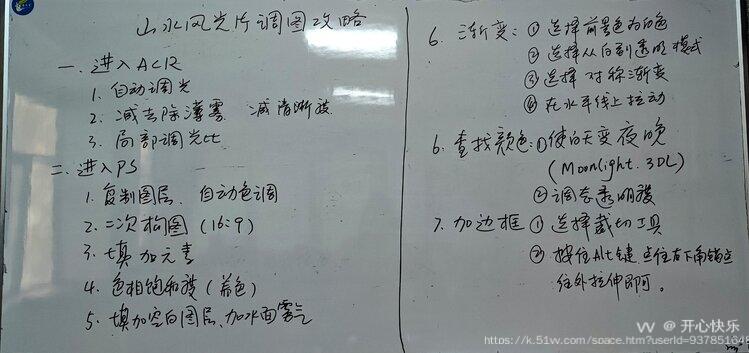 山水风光片调图攻略
一. 进入ACR
1. 自动调光
2. 减去除薄雾 减清晰度
3. 局部调光比
二. 进入PS
1. 复制图层、自动色调
2. 二次构图 (16:9)
3. 填加元素
4. 色相饱和度 (着色)
5. 填加空白图层、加水面雾气
6. 渐变: ① 选择前景色为白色
② 选择从白到透明模式
③ 选择对称渐变
④ 在水平线上拉动
6. 查找颜色: ①使白天变夜晚
(Moonlight. 3DL)
②调态透明度
7. 加边框 ① 选择裁切工具
② 按住Alt键点住右下角锚点
往外拉伸即可。
VV @ 开心快乐
https://k.51w.com/space.htm?userId=93785164